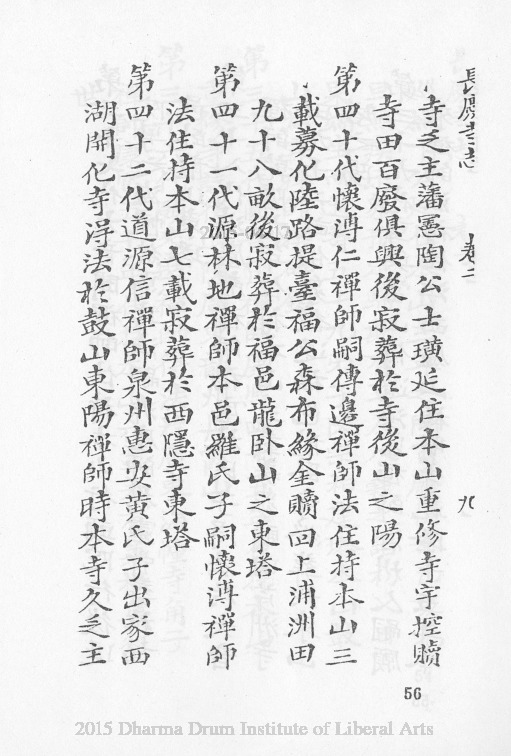 長慶寺志 卷二 九
寺乏主藩憲陶公士璜延住本山重修寺宇控贖
寺田百廢俱興後寂葬於寺後山之陽
第四十代懷溥仁禪師嗣傳邊禪師法住持本山三
載募化陸路提臺福公森布緣金贖回上浦洲田
九十八畝後寂葬於福邑龍卧山之東塔
第四十一代源林地禪師本邑羅氏子嗣懷溥禪師
法住持本山七載寂葬於西隱寺東塔
第四十二代道源信禪師泉州惠安黄氏子出家西
湖開化寺淂法於鼓山東陽禪師時本寺久乏主
56
2015 Dharma Drum Institute of Liberal Arts